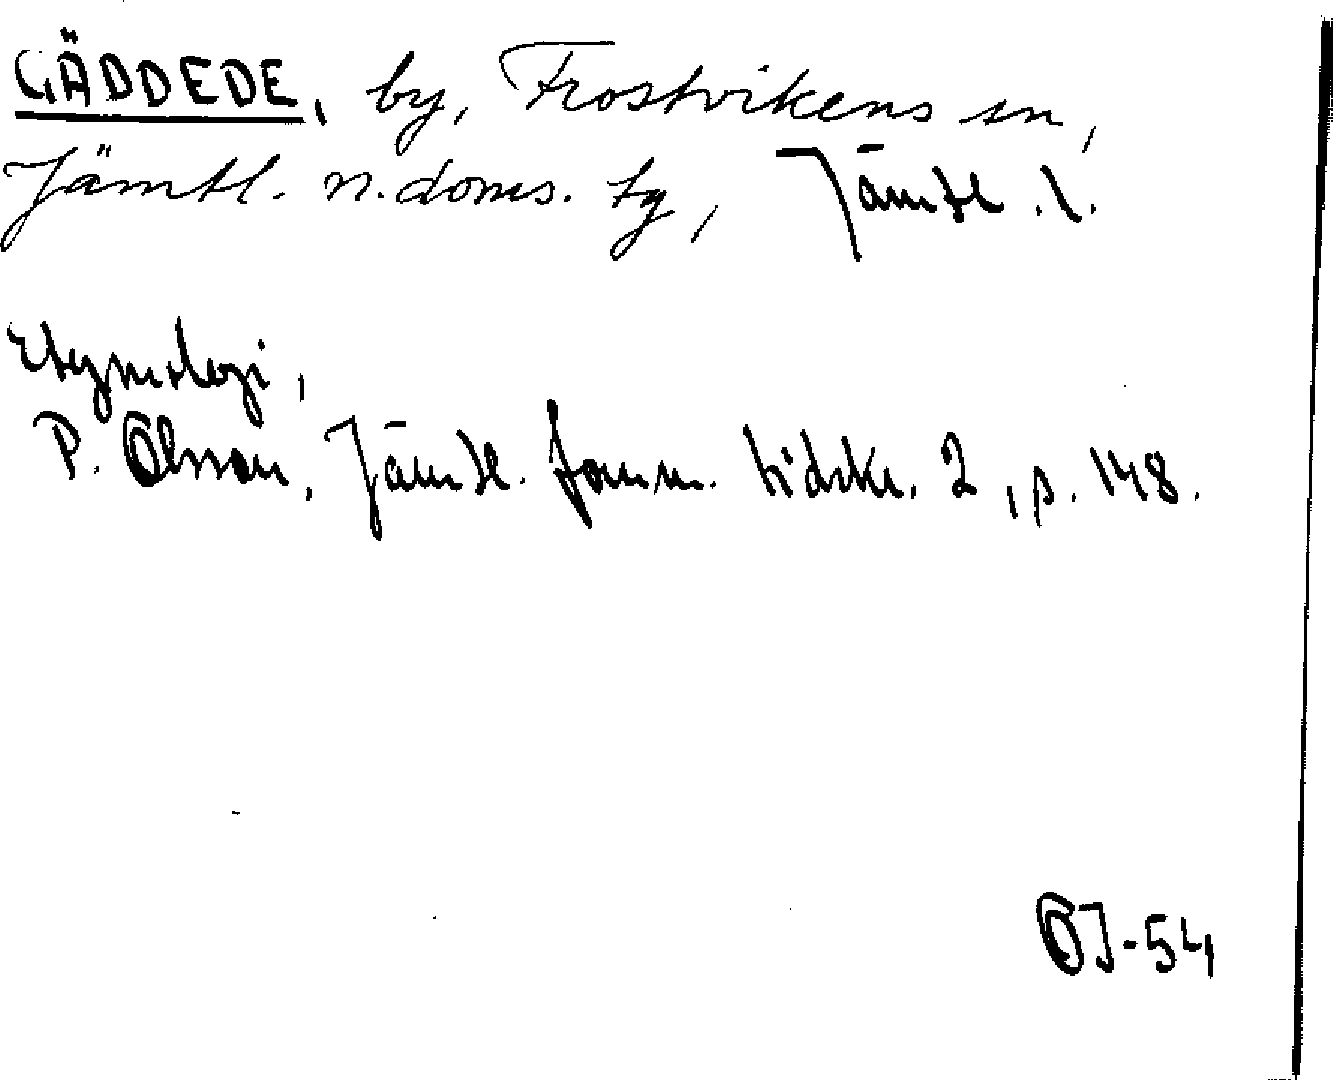 GÄDDEDE, by, Frostvikens sn,
Jämtl. n. doms. tg, Jämtl. l.
Etymologi,
P. Olsson, Jämtl. fornm. tidskr. 2, s. 148.
OJ-54